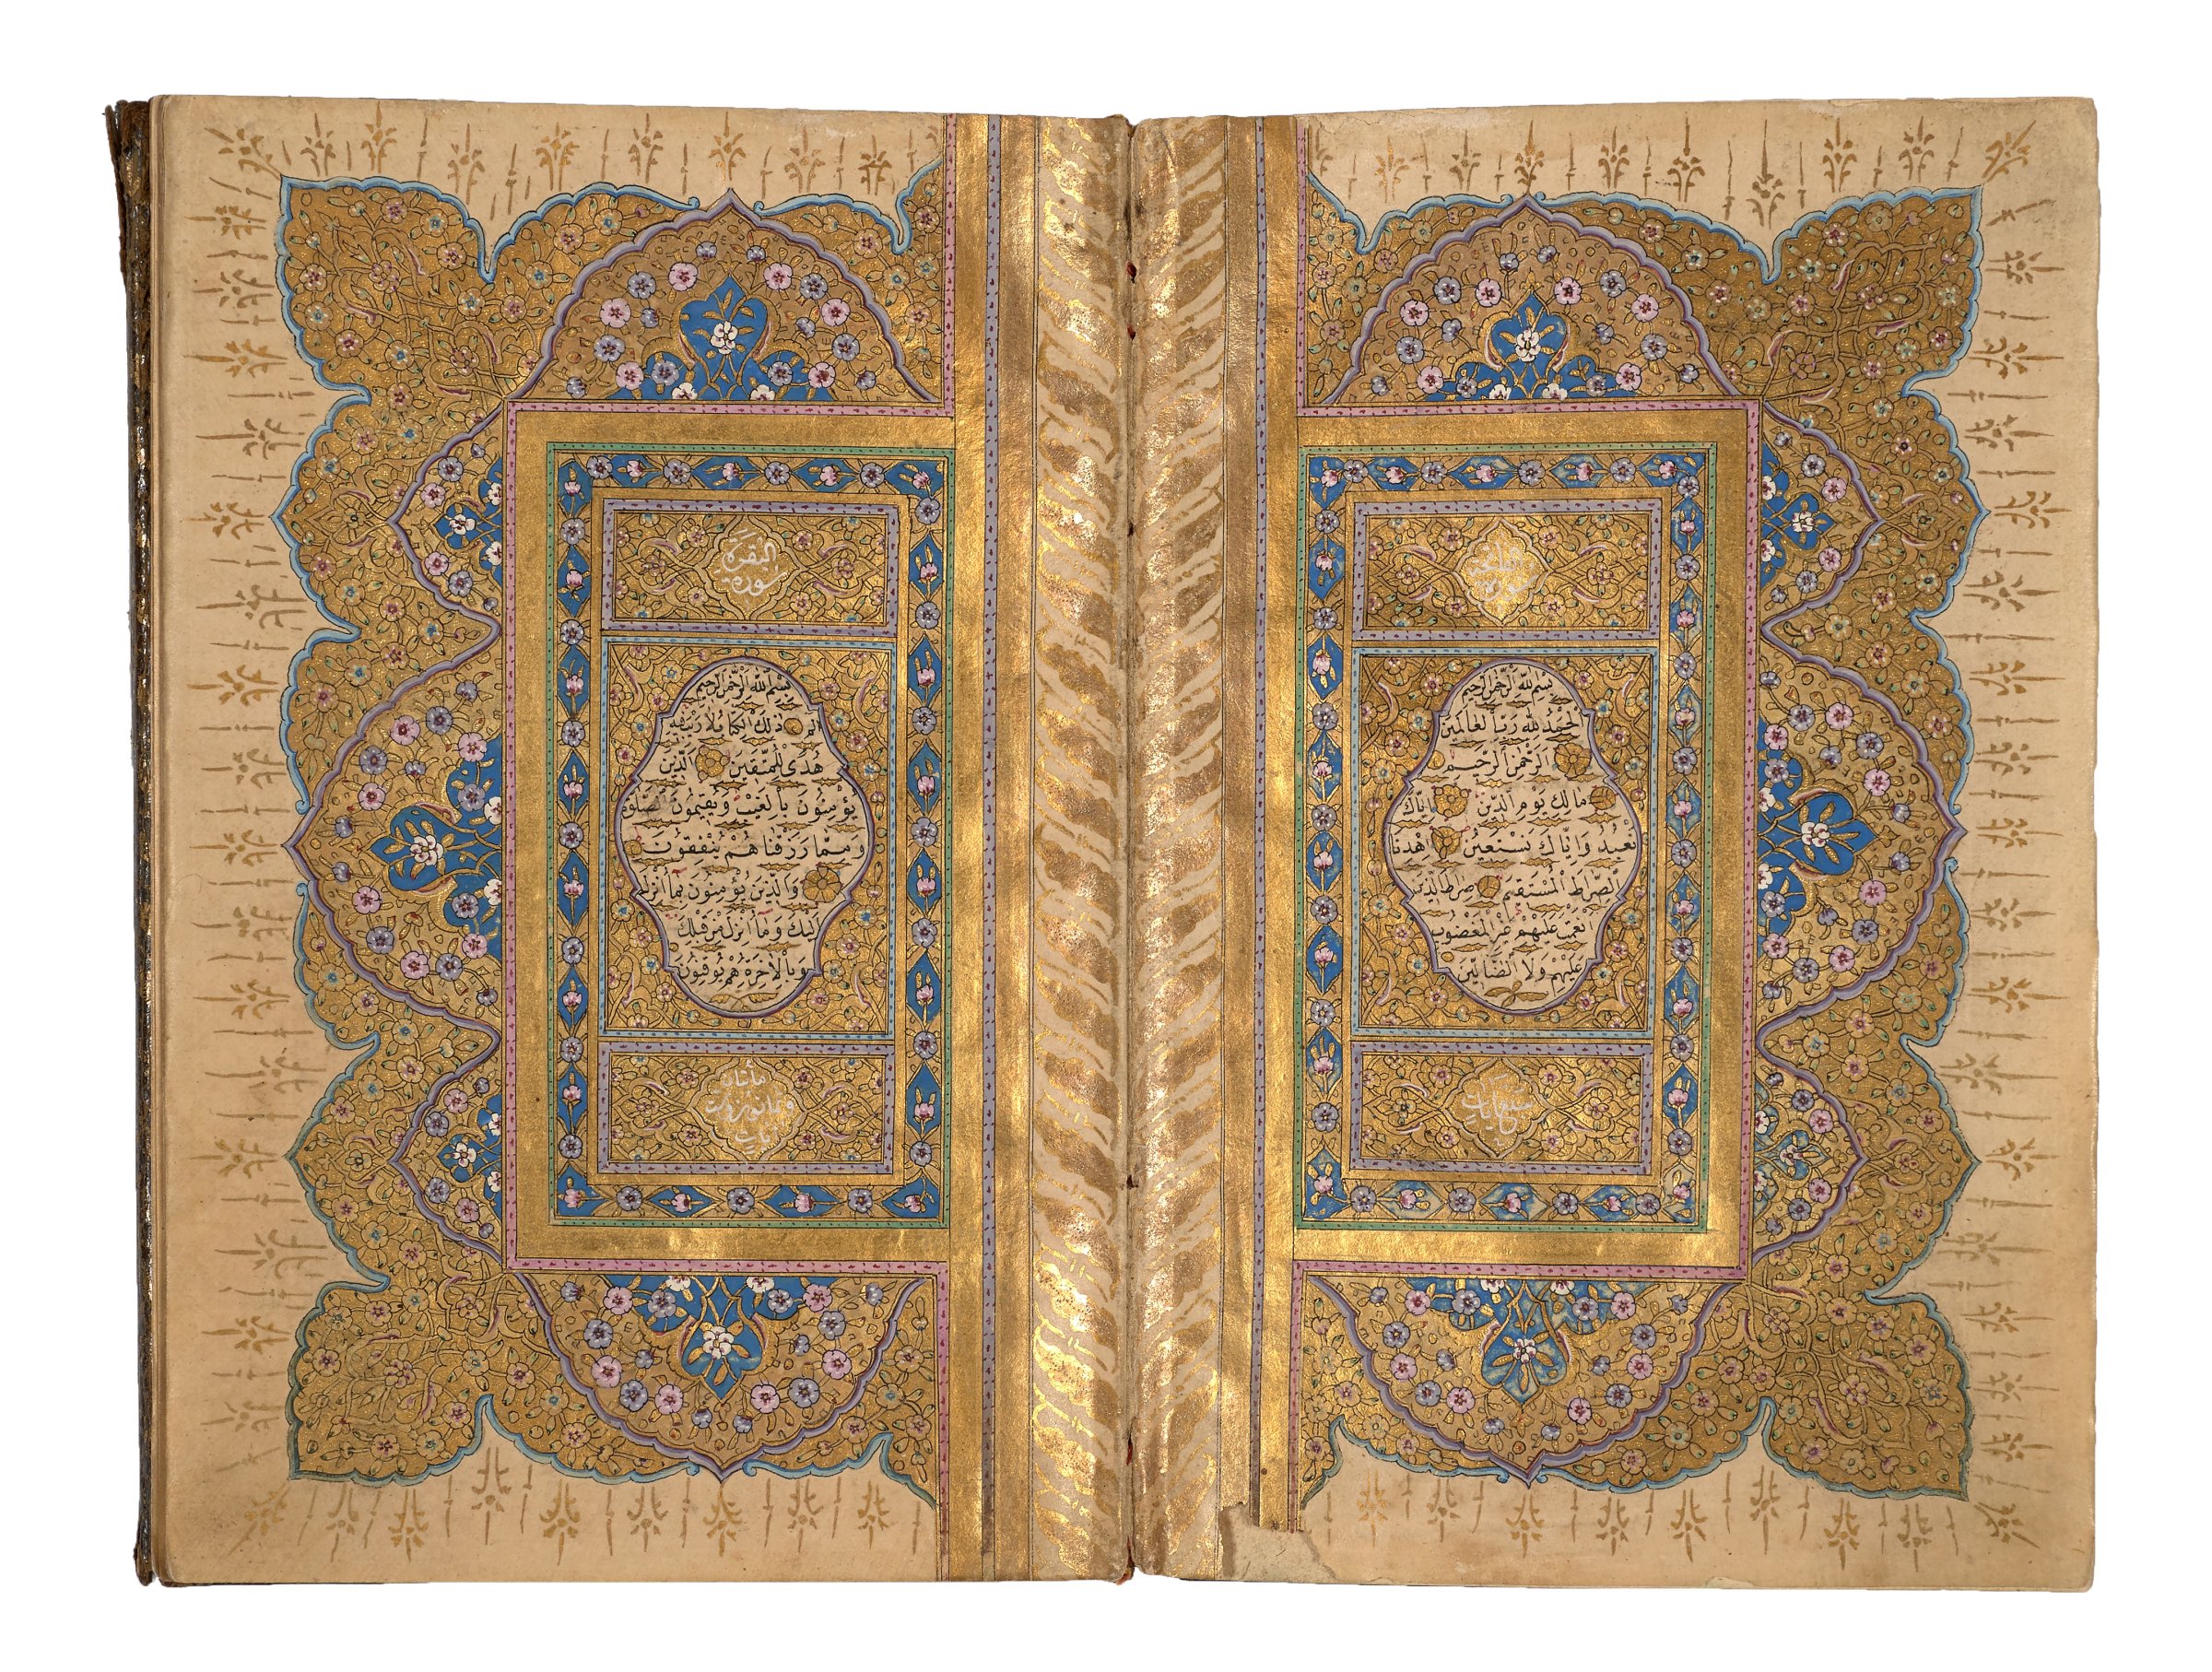 سورة الفاتحة
بِسْمِ اللّٰهِ الرَّحْمٰنِ الرَّحِيمِ
اَلْحَمْدُ لِلّٰهِ رَبِّ الْعَالَمِينَ
الرَّحْمٰنِ الرَّحِيمِ
مَالِكِ يَوْمِ الدِّينِ اِيَّاكَ
نَعْبُدُ وَاِيَّاكَ نَسْتَعِينُ اِهْدِنَا
الصِّرَاطَ الْمُسْتَقِيمَ صِرَاطَ الَّذِينَ
اَنْعَمْتَ عَلَيْهِمْ غَيْرِ الْمَغْضُوبِ
عَلَيْهِمْ وَلَا الضَّالِّينَ
سبع ايات
سورة البقرة
بِسْمِ اللّٰهِ الرَّحْمٰنِ الرَّحِيمِ
الٓمٓ ذٰلِكَ الْكِتَابُ لَا رَيْبَ فِيهِ
هُدًى لِلْمُتَّقِينَ اَلَّذِينَ
يُؤْمِنُونَ بِالْغَيْبِ وَيُقِيمُونَ الصَّلٰوةَ
وَمِمَّا رَزَقْنَاهُمْ يُنْفِقُونَ
وَالَّذِينَ يُؤْمِنُونَ بِمَا اُنْزِلَ
اِلَيْكَ وَمَا اُنْزِلَ مِنْ قَبْلِكَ
وَبِالْاٰخِرَةِ هُمْ يُوقِنُونَ
مأتان
وثمانون وست
ايات